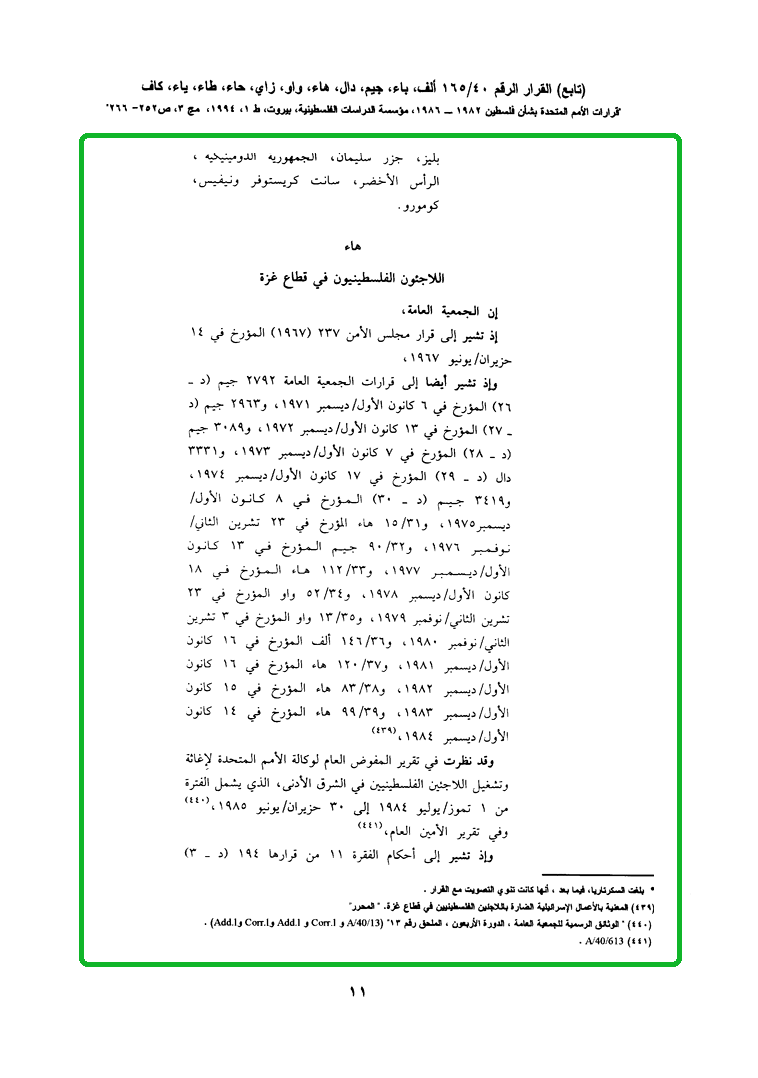 (تابع) القرار الرقم ١٦٥/٤٠ ألف، باء، جيم، دال، هاء، واو، زاي، حاء، طاء، ياء، كاف
"قرارات الأمم المتحدة بشأن فلسطين ١٩٨٢ – ١٩٨٦، مؤسسة الدراسات الفلسطينية، بيروت، ط ١، ١٩٩٤، مج ٣، ص٢٥٢- ٢٦٦"
بليز، جزر سليمان، الجمهورية الدومينيكية،
الرأس الأخضر، سانت كريستوفر ونيفيس،
كومورو.
هاء
اللاجئون الفلسطينيون في قطاع غزة
إن الجمعية العامة،
إذ تشير إلى قرار مجلس الأمن ٢٣٧ (١٩٦٧) المؤرخ في ١٤
حزيران/يونيو ١٩٦٧،
وإذ تشير أيضا إلى قرارات الجمعية العامة ٢٧٩٢ جيم (د ـ
٢٦) المؤرخ في ٦ كانون الأول/ديسمبر ١٩٧١، و٢٩٦٣ جيم (د
ـ ٢٧) المؤرخ في ١٣ كانون الأول/ديسمبر ١٩٧٢، و٣٠٨٩ جيم
(د ـ ٢٨) المؤرخ في ٧ كانون الأول/ديسمبر ١٩٧٣، و٣٣٣١
دال (د ـ ٢٩) المؤرخ في ١٧ كانون الأول/ديسمبر ١٩٧٤،
و٣٤١٩ جيم (د ـ ٣٠) المؤرخ في ٨ كانون الأول/
ديسمبر١٩٧٥، و١٥/٣١ هاء المؤرخ في ٢٣ تشرين الثاني/
نوفمبر ١٩٧٦، و٩٠/٣٢ جيم المؤرخ في ١٣ كانون
الأول/ديسمبر ١٩٧٧، و١١٢/٣٣ هاء المؤرخ في ١٨
كانون الأول/ديسمبر ١٩٧٨، و٥٢/٣٤ واو المؤرخ في ٢٣
تشرين الثاني/نوفمبر ١٩٧٩، و١٣/٣٥ واو المؤرخ في ٣ تشرين
الثاني/نوفمبر ١٩٨٠، و١٤٦/٣٦ ألف المؤرخ في ١٦ كانون
الأول/ديسمبر ١٩٨١، و١٢٠/٣٧ هاء المؤرخ في ١٦ كانون
الأول/ديسمبر ١٩٨٢، و٨٣/٣٨ هاء المؤرخ في ١٥ كانون
الأول/ديسمبر ١٩٨٣، و٩٩/٣٩ هاء المؤرخ في ١٤ كانون
الأول/ديسمبر ١٩٨٤،(٤٣٩)
وقد نظرت في تقرير المفوض العام لوكالة الأمم المتحدة لإغاثة
وتشغيل اللاجئين الفلسطينيين في الشرق الأدنى، الذي يشمل الفترة
من ١ تموز/يوليو ١٩٨٤ إلى ٣٠ حزيران/يونيو ١٩٨٥،(٤٤٠)
وفي تقرير الأمين العام،(٤٤١)
وإذ تشير إلى أحكام الفقرة ١١ من قرارها ١٩٤ (د ـ ٣)
* بلغت السكرتاريا، فيما بعد، أنها كانت تنوي التصويت مع القرار .
(٤٣٩) المعنية بالأعمال الإسرائيلية الضارة باللاجئين الفلسطينيين في قطاع غزة. "المحرر"
(٤٤٠) " الوثائق الرسمية للجمعية العامة ، الدورة الأربعون ، الملحق رقم ١٣" (A/40/13 و Corr.1 و Add.1 وCorr.1 وAdd.1) .
(٤٤١) A/40/613 .
١١